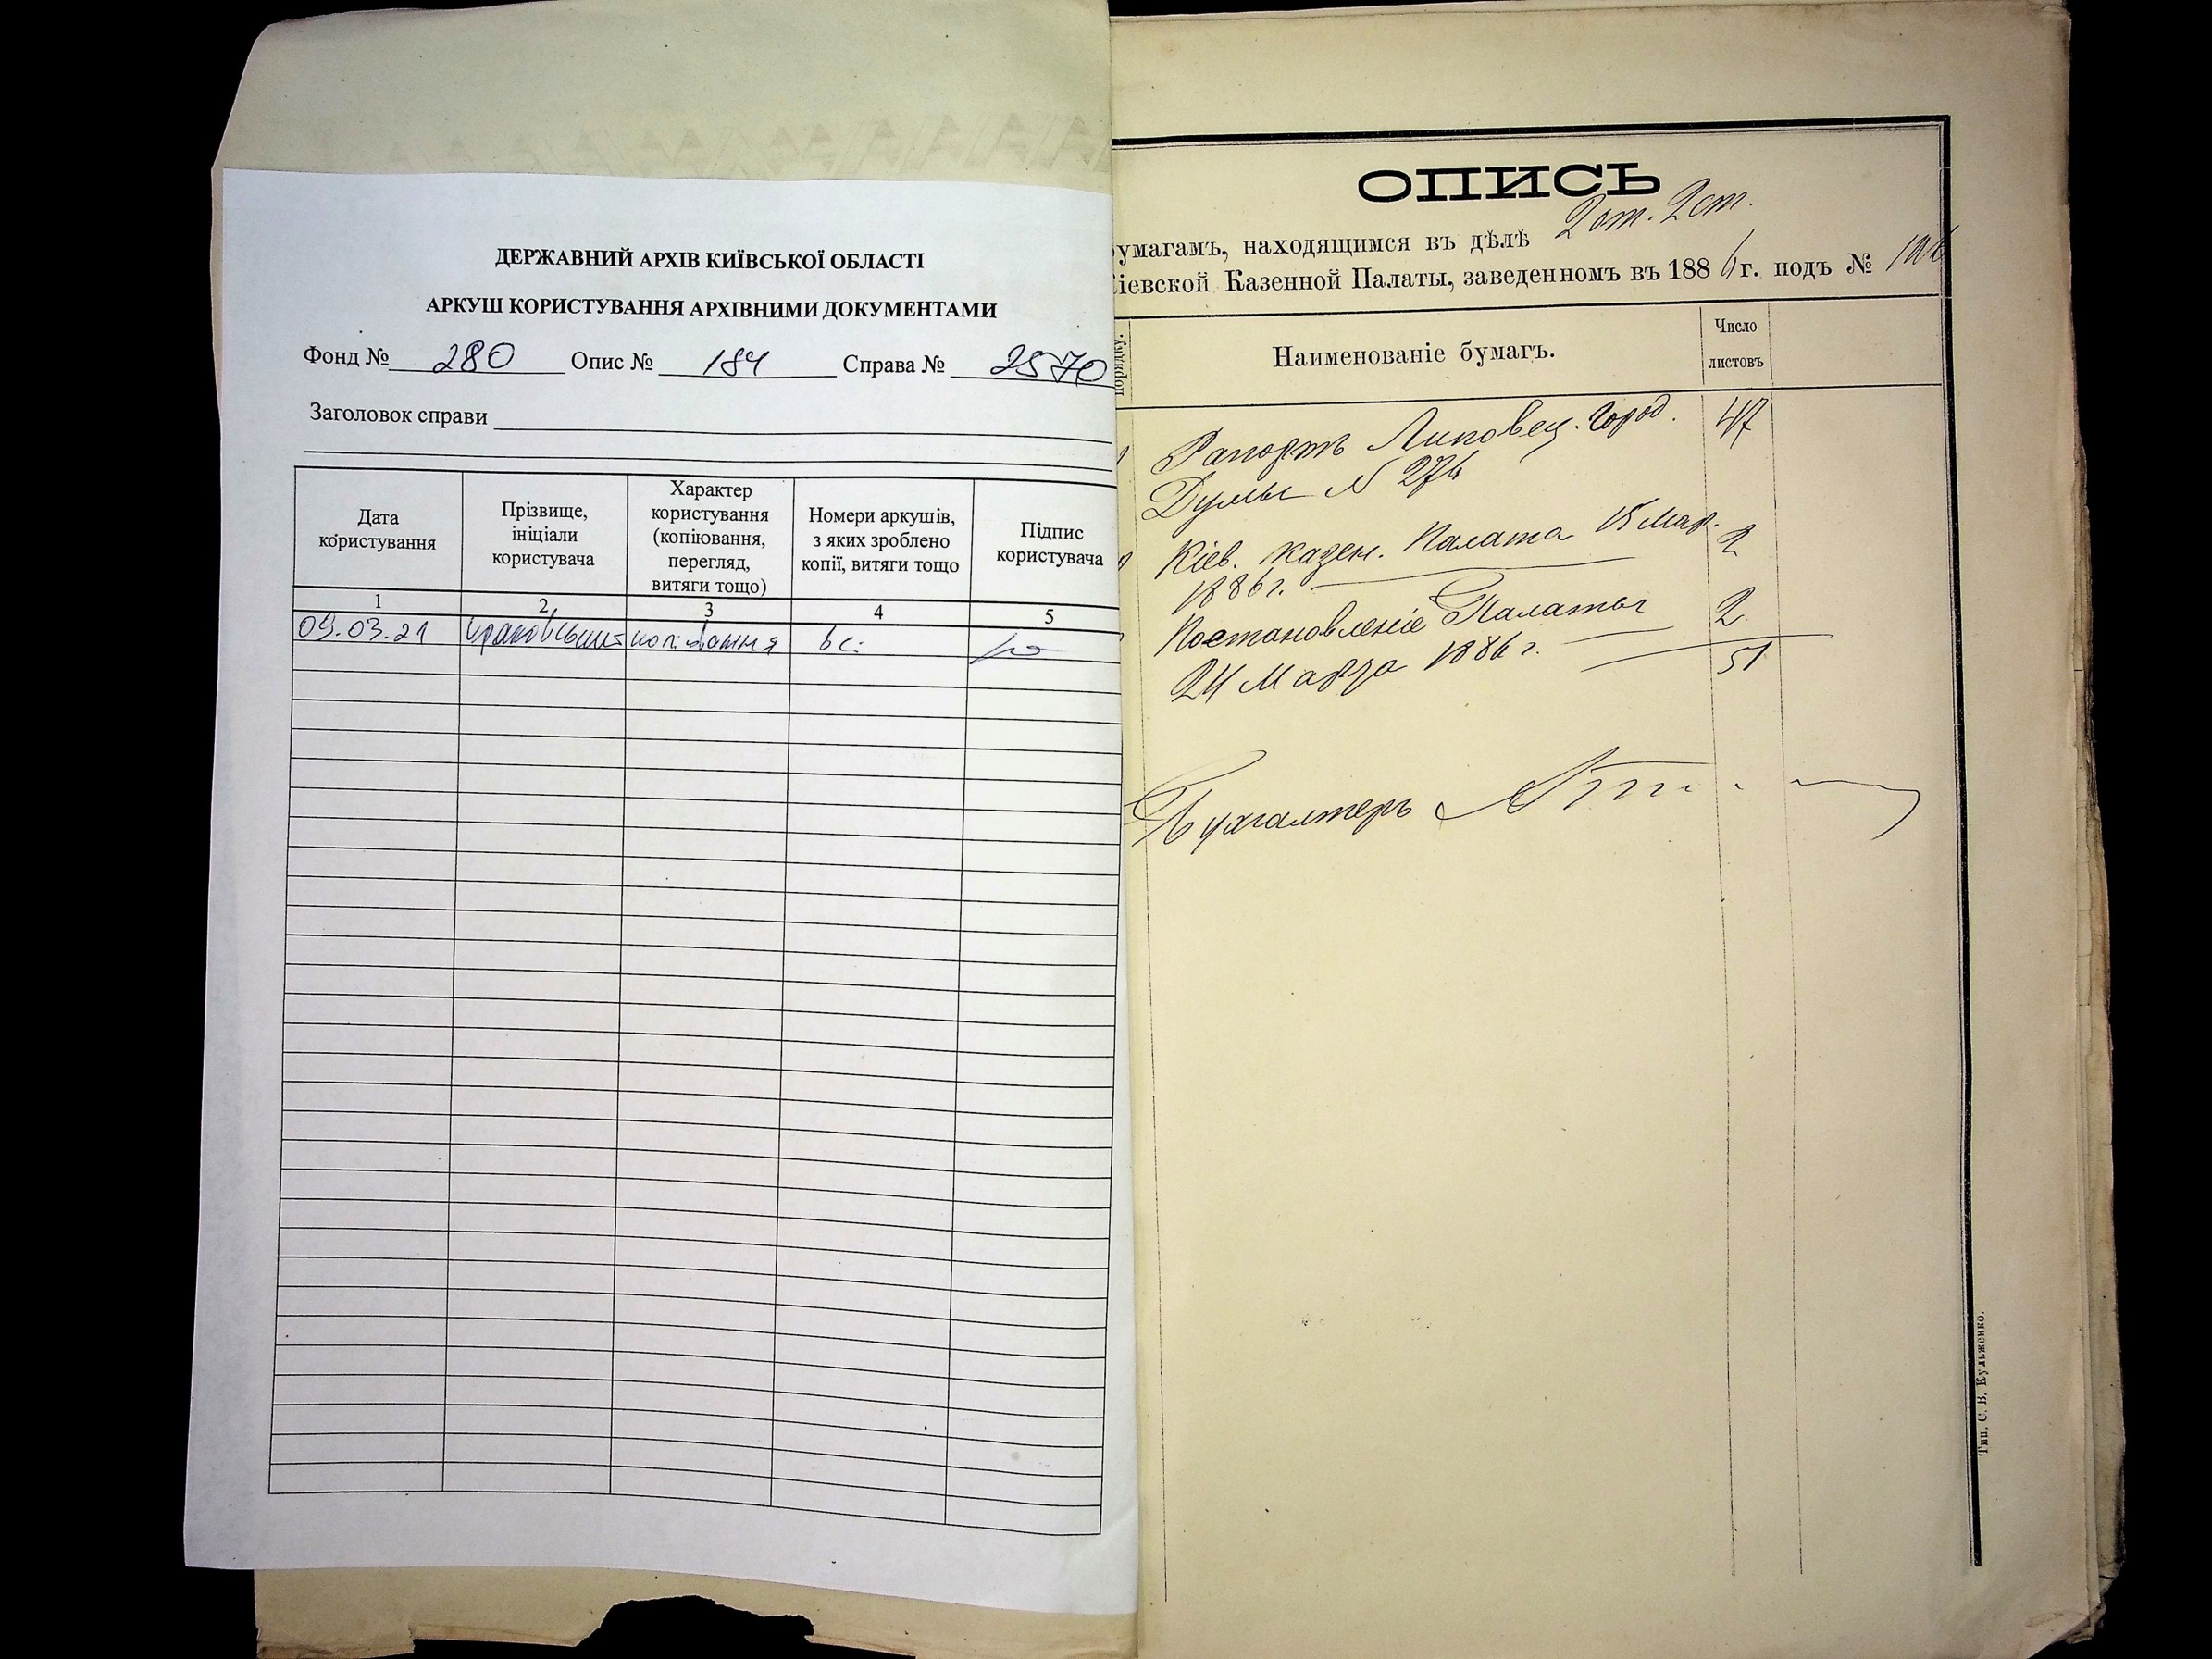 ДЕРЖАВНИЙ АРХІВ КИЇВСЬКОЇ ОБЛАСТІ
АРКУШ КОРИСТУВАННЯ АРХІВНИМИ ДОКУМЕНТАМИ
Фонд № 280 Опис № 184 Справа № 2570
Заголовок справи
Дата користування
Прізвище, ініціали користувача
Характер користування (копіювання, перегляд, витяги тощо)
Номери аркушів, з яких зроблено копії, витяги тощо
Підпис користувача
1 2 3 4 5
09.03.21 копіювання всі
ОПИСЬ
2 от. 2 ст.
бумагамъ, находящимся въ дѣлѣ
Кіевской Казенной Палаты, заведенномъ въ 1886 г. подъ №
порядку.
Наименованіе бумагъ.
Число листовъ
Рапортъ Липовец. Город. 47
Думы № 274
Кіев. Казен. Палата 15 Мар. 2
1886 г.
Постановленіе Палаты 2
24 Марта 1886 г. 51
Бухгалтеръ
Тип. С. В. Кульженко.